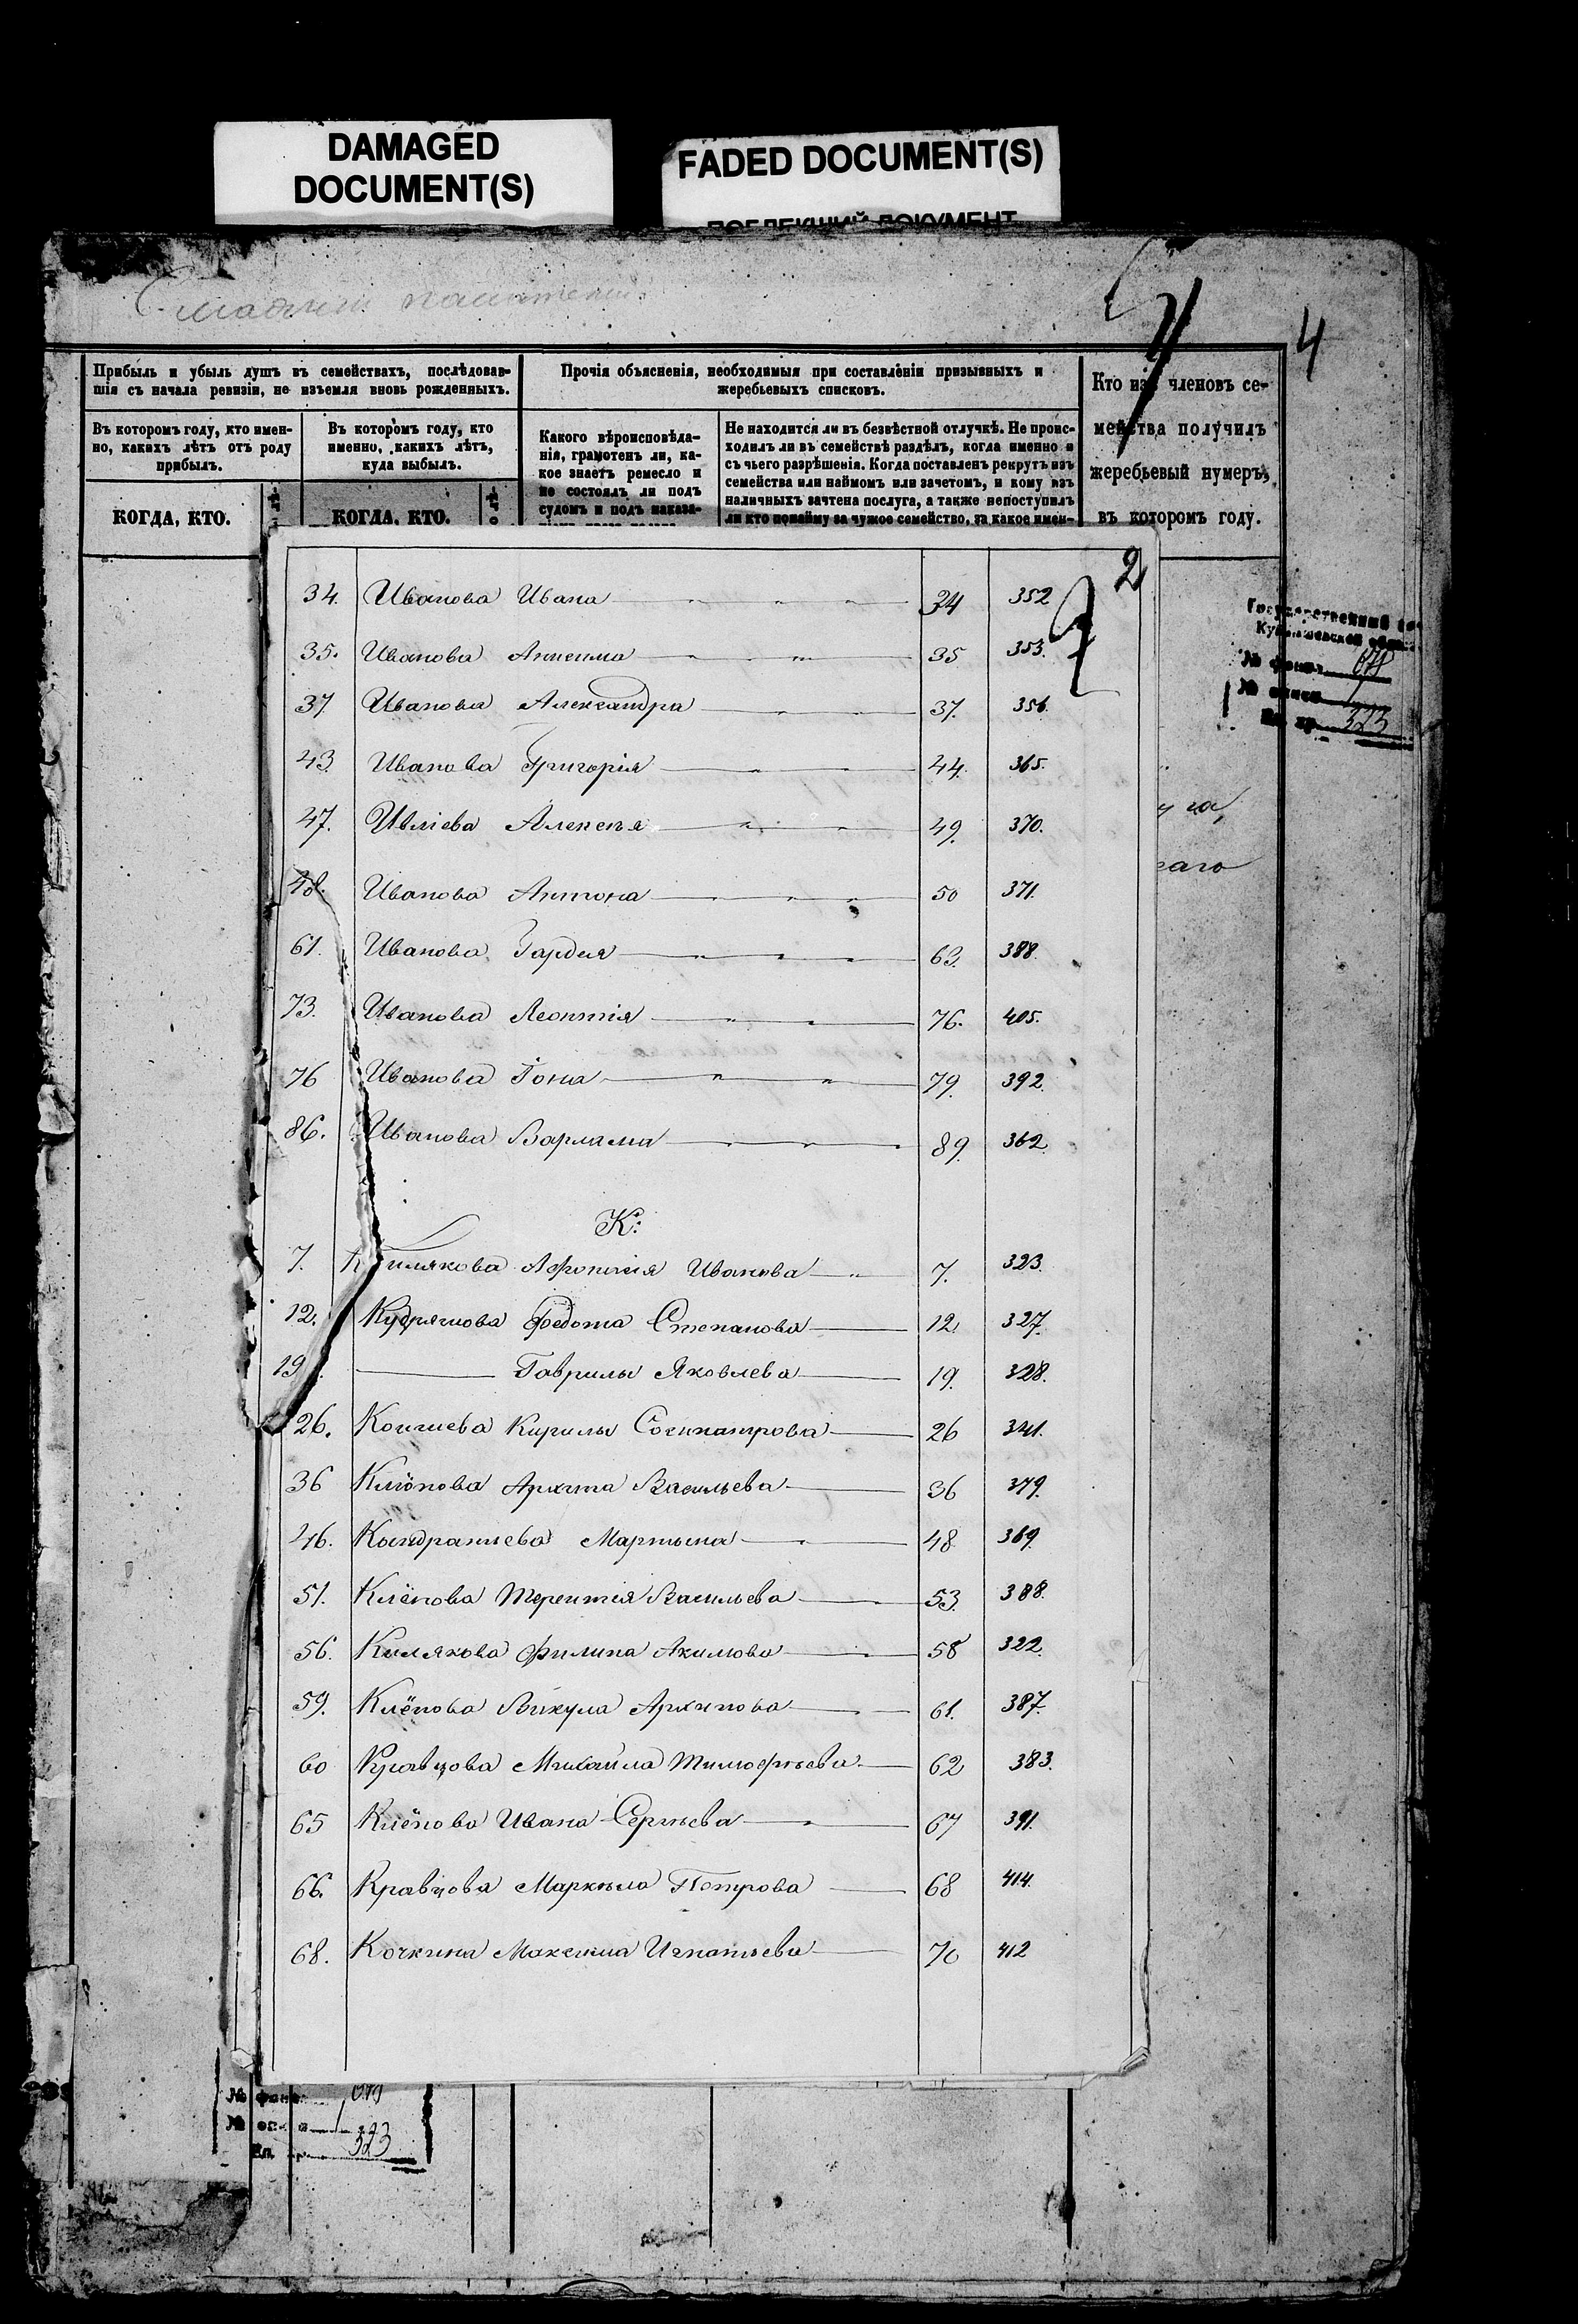 DAMAGED
DOCUMENT(S)
FADED DOCUMENT(S)
4
Прибыль и убыль душъ въ семействахъ, послѣдовав-
шія съ начала ревизіи, не изъемля вновь рожденныхъ.
Въ которомъ году, кто имен-
но, какихъ лѣтъ отъ роду
прибылъ.
Въ которомъ году, кто
именно, какихъ лѣтъ,
куда выбылъ.
КОГДА, КТО.
КОГДА, КТО.
Прочія объясненія, необходимыя при составленіи призывныхъ и
жеребьевыхъ списковъ.
Какого вѣроисповѣда-
нія, грамотенъ ли, ка-
кое знаетъ ремесло и
не состоялъ ли подъ
судомъ и подъ наказа-
Не находится ли въ безвѣстной отлучкѣ. Не проис-
ходилъ ли въ семействѣ раздѣлъ, когда именно и
съ чьего разрѣшенія. Когда поставленъ рекрутъ изъ
семейства или наймомъ или зачетомъ, и кому изъ
наличныхъ зачтена послуга, а также непоступилъ
ли кто понайму за чужое семейство, за какое имен-
Кто изъ членовъ се-
мейства получилъ
жеребьевый нумеръ,
въ которомъ году.
2
34. Иванова Ивана 34 352
35. Иванова Анисима 35 353.
37 Иванова Александра 37. 356.
43. Иванова Григорія 44. 365.
47. Ивліева Алексѣя 49. 370.
48. Иванова Антона 50 371.
61. Иванова Гордея 63. 388.
73. Иванова Леонтія 76. 405.
76 Иванова Іона 79. 392.
86. Иванова Варлама 89. 362.
К:
7. Иванова 7. 323.
12. Кудряшова Федота Степанова 12. 327.
19. Гаврилы Яковлева 19. 328.
26. Кирилы 26 341.
36 Клёпова Архипа Васильева 36 379.
46. Кандратьева Мартына 48 369.
51. Клёпова Терентія Васильева 53. 388.
56. Килякова Филипа Акимова 58 322.
59. Клёпова Викула Архипова 61. 387.
60 Кравцова Михайла Тимофѣева 62 383.
65 Клёпова Ивана Сергѣева 67 391.
66. Кравцова Маркѣла Петрова 68 414.
68. Кочкина Максима Игнатьева 70 412
раго
Государственный
№ фонд
№ описи 1
323
№ фонд
№ оп 1
323